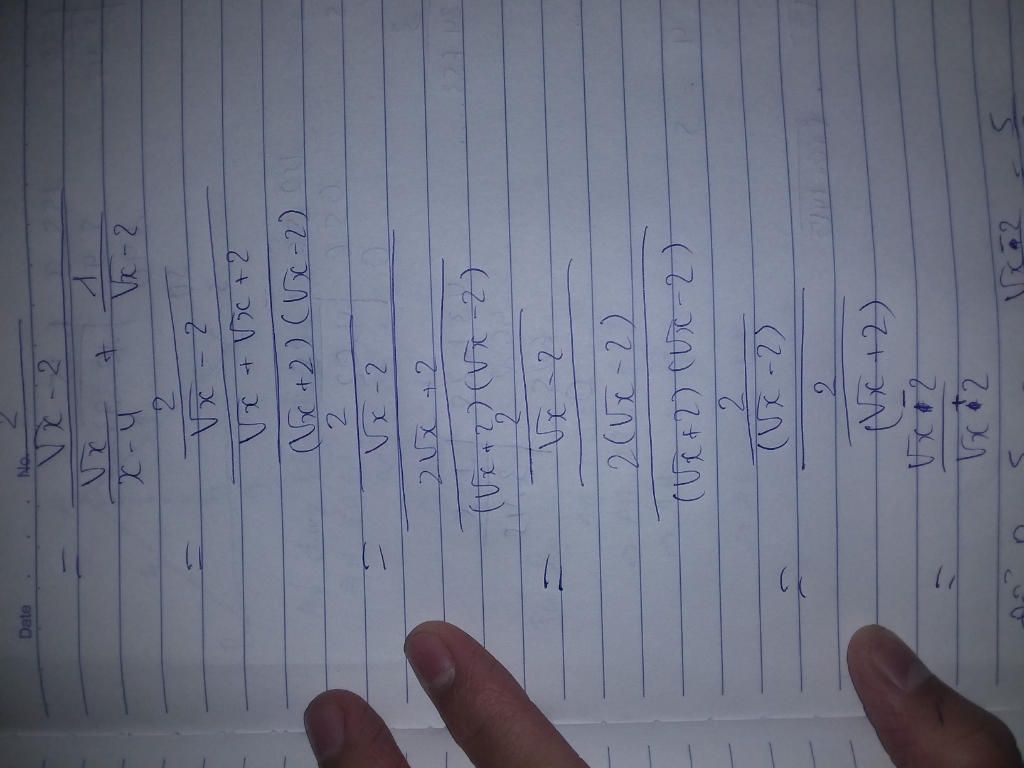 Date . . . No.
2
= √x - 2
√x + 1
x - 4 √x - 2
2
= √x - 2
√x + √x + 2
(√x + 2)(√x - 2)
2
= √x - 2
2√x + 2
(√x + 2)(√x - 2)
2
= √x - 2
2(√x - 2)
(√x + 2)(√x - 2)
2
= (√x - 2)
2
(√x + 2)
= √x - 2
√x + 2
√x - 2 = 5